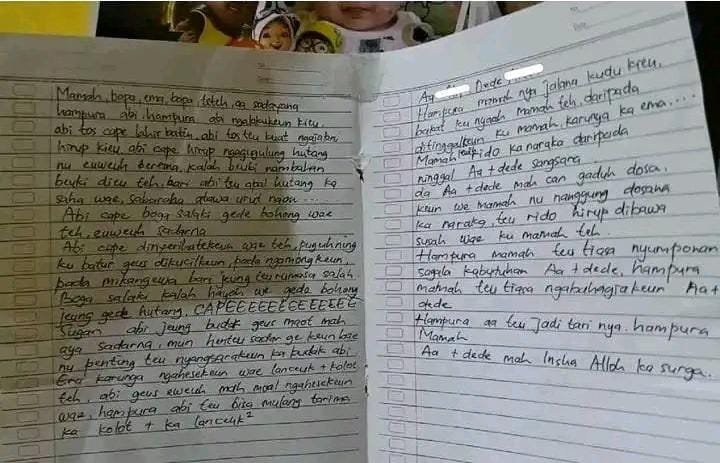 Mamah, bopo, ema, bapa teteh, aa sadayana
hampura abi, hampura abi ngalakukeun kieu,
abi tos cape lahir batin, abi tos teu kuat ngajalan
hirup kieu, abi cape hirup ngagugulung hutang
nu euweuh berena, kalah beuki nambahan
beuki dieu teh, bari abi teu apal hutang ka
saha wae, sabaraha atawa urut naon ....
Abi cape boga salaki gede bohong wae
teh, euweuh sadarna
Abi cape wae teh, puguhning
ku batur geus dikucilkeun, pada ngomongkeun,
pada mikangewa bari jeung teu rumasa salah
Boga salaki kalah hayoh we gede bohong
jeung gede hutang, CAPEEEEEEEEEEEEEE
Sugan abi jeung budak geus maot mah
aya sadarna, mun henteu sadar ge keun bae
nu penting teu nyangsarakeun ka budak abi
Era karunya ngahesekeun wae lanceuk + kolot
teh, abi geus euweuh mah moal ngahesekeun
wae, hampura abi teu bisa mulang tarima
ka kolot + ka lanceuk²
Aa Dede
Hampura mamah nya jalana kudu kieu,
bakat ku nyaah mamah teh, daripada
ditinggalkeun ku mamah, karunya ka ema....
Mamah rido ka naraka daripada
ninggal Aa + dede sangsara
da Aa + dede mah can gaduh dosa,
keun we mamah nu nanggung dosana
ka naraka, teu rido hirup dibawa
susah wae ku mamah teh.
Hampura mamah teu tiasa nyumponan
sagala kabutuhan Aa + dede, hampura
mamah teu tiasa ngabahagiakeun Aa +
dede
Hampura aa teu jadi tari nya. hampura
Mamah
Aa + dede mah Insha Alloh ka surga.